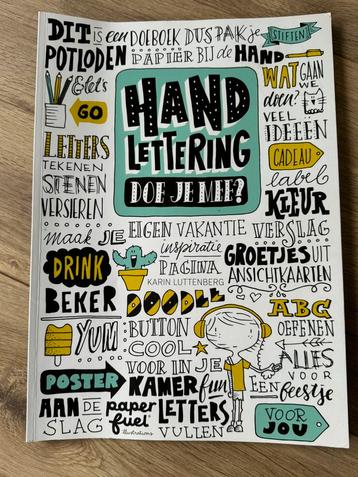 DIT is een DOEBOEK DUS PAK je STIFTEN
POTLODEN PAPIER BIJ de HAND
& let's GO
WAT GAAN WE doen?
VEEL IDEEËN
HAND
LETTERING
DOE JE MEE?
LETTERS
TEKENEN
STENEN
VERSIEREN
CADEAU
label
KLEUR
maak JE EIGEN VAKANTIE VERSLAG
DRINK
BEKER
inspiratie
PAGINA
KARIN LUTTENBERG
GROETJES UIT
ANSICHTKAARTEN
DOODLE
ABC
OEFENEN
YUM
BUTTON
COOL
ALLES
VOOR
EEN
feestje
POSTER
AAN DE
SLAG
VOOR IN JE
KAMER fun
LETTERS
VULLEN
paper
fuel
illustrations
VOOR
JOU